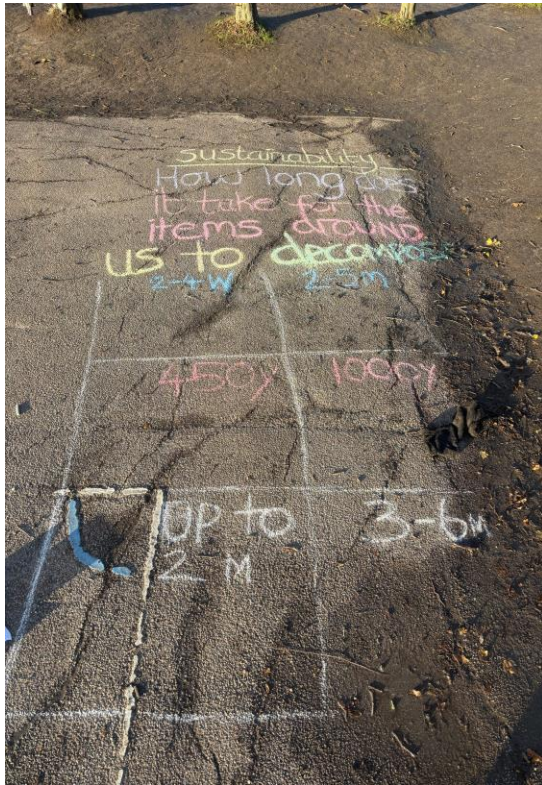 sustainability
How long does
it take for the
items around
us to decompose
2-4W 2-5m
450y 1000y
UP to 3-6M
2 M